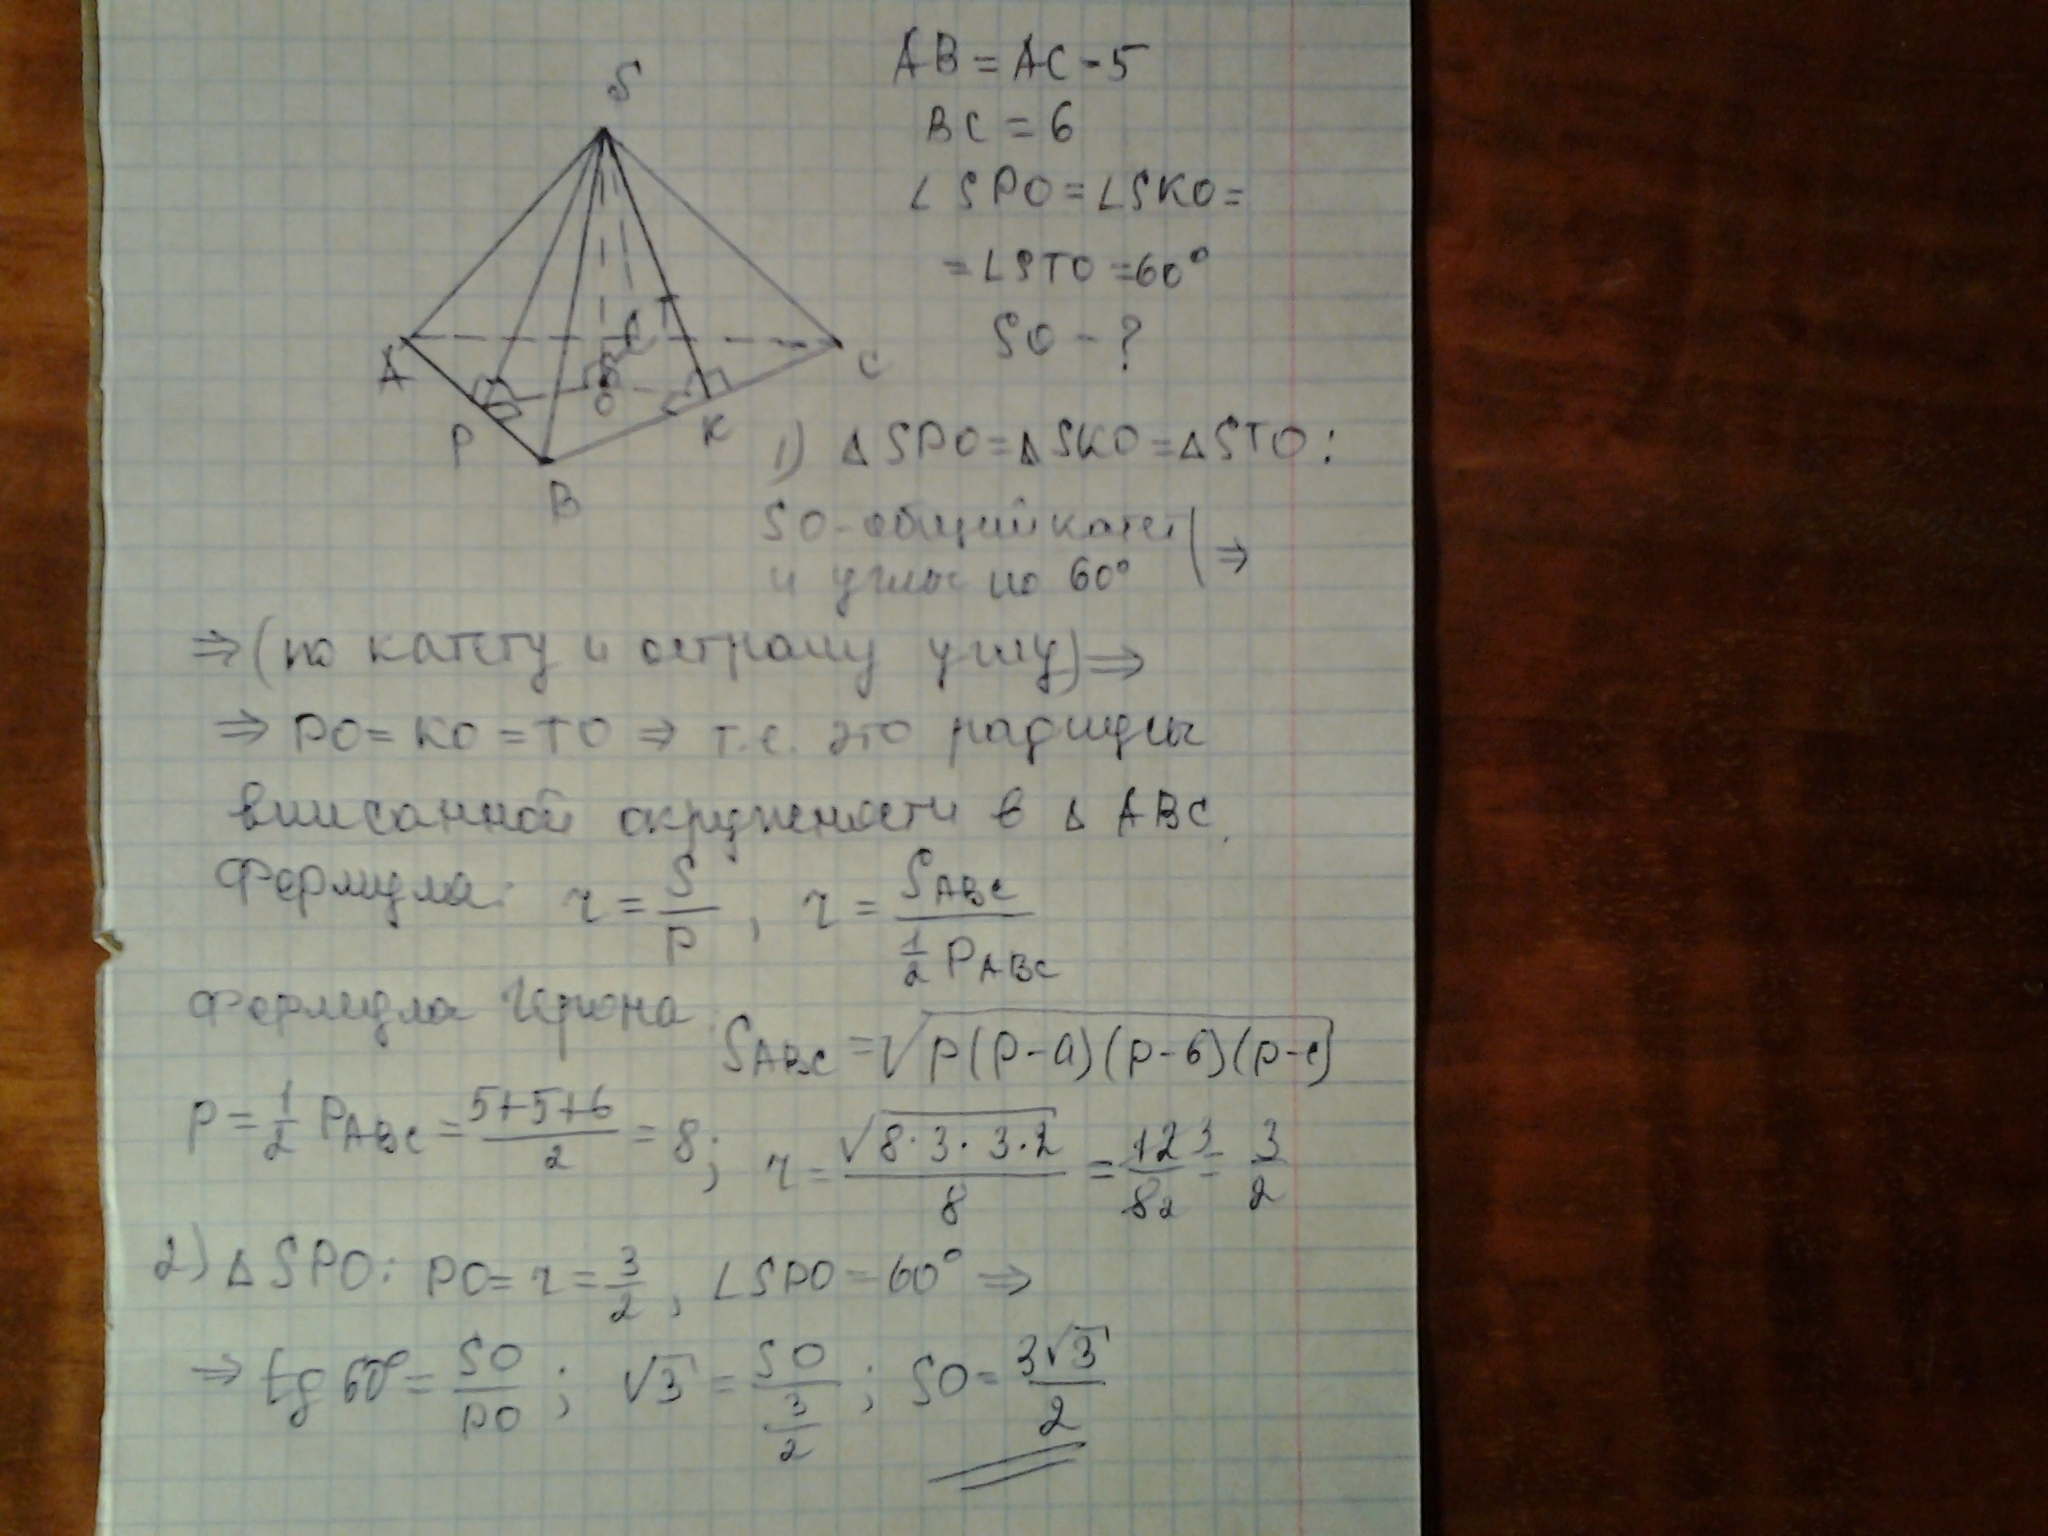 S
A
P
B
O
K
T
C
AB = AC - 5
BC = 6
∠SPO = ∠SKO =
= ∠STO = 60°
SO - ?
1) ΔSPO = ΔSKO = ΔSTO :
SO - общий катет
и углы по 60° | ⇒
⇒ (по катету и острому углу) ⇒
⇒ PO = KO = TO ⇒ т.е. это радиусы
вписанной окружности в Δ ABC.
Формула: r = S/p , r = S_ABC / (1/2 P_ABC)
Формула Герона: S_ABC = √(p(p-a)(p-b)(p-c))
p = 1/2 P_ABC = (5+5+6)/2 = 8; r = √(8·3·3·2)/8 = 12 3/8 2 = 3/2
2) ΔSPO: PO = r = 3/2, ∠SPO = 60° ⇒
⇒ tg 60° = SO/PO ; √3 = SO/(3/2) ; SO = 3√3/2